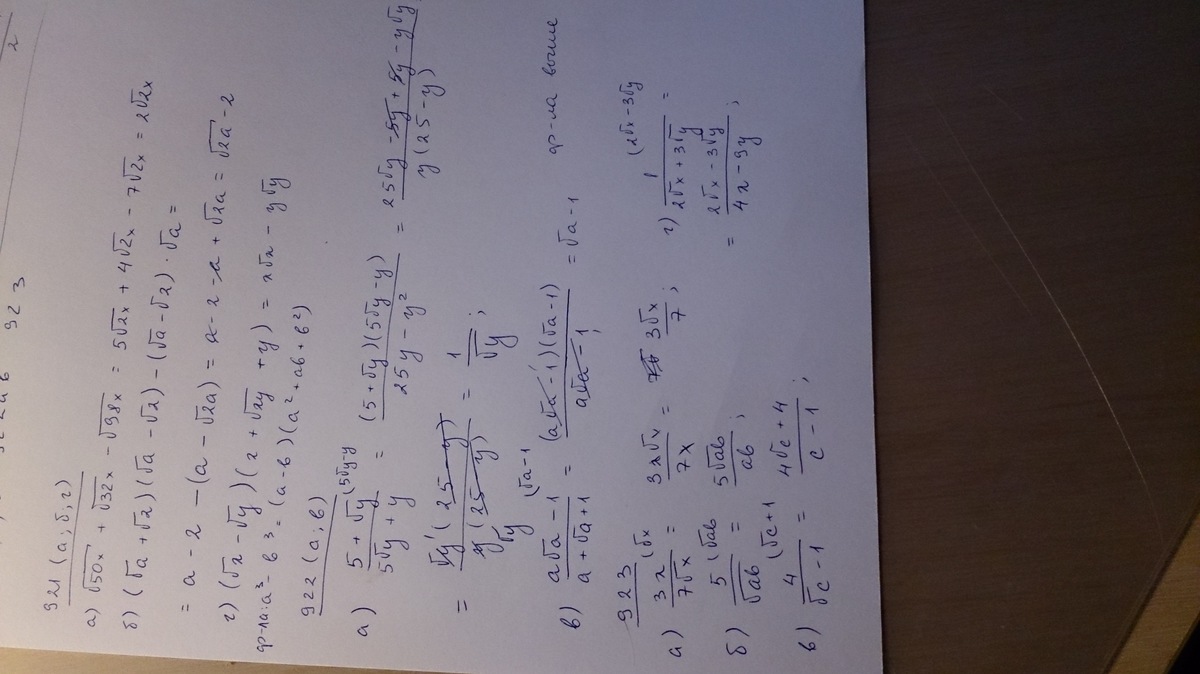 923
2
921 (а; б; г)
а) √50x + √32x - √98x = 5√2x + 4√2x - 7√2x = 2√2x
б) (√a + √2)(√a - √2) - (√a - √2) · √a =
= a - 2 - (a - √2a) = a - 2 - a + √2a = √2a - 2
г) (√x - √y)(x + √xy + y) = x√x - y√y
ф-ла: a³ - b³ = (a - b)(a² + ab + b²)
922 (а, в)
а) (5 + √y)/(5√y + y) (5√y-y = ((5 + √y)(5√y - y))/(25y - y²) = (25√y - 5y + 5y - y√y)/(y(25 - y))
= (√y (25 - y))/(y (25 - y)) = 1/√y ;
в) (a√a - 1)/(a + √a + 1) (√a - 1 = ((a√a - 1)(√a - 1))/(a√a - 1) = √a - 1 ; ф-ла выше
923
а) 3x/7√x (√x = 3x√x/7x = 3√x/7 ;
г) 1/(2√x + 3√y) (2√x - 3√y =
= (2√x - 3√y)/(4x - 9y) ;
б) 5/√ab (√ab = 5√ab/ab ;
в) 4/(√c - 1) (√c + 1 = (4√c + 4)/(c - 1) ;